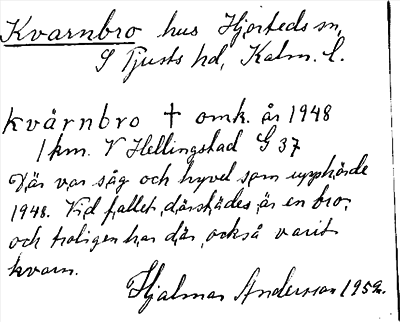 Kvarnbro hus Hjorteds sn,
S Tjusts hd, Kalm. l.
kvårnbro † omk. år 1948
1 km. V Hellingstad G 37
Där var såg och hyvel som upphörde
1948. Vid fallet därstädes är en bro,
och troligen har där också varit
kvarn.
Hjalmar Andersson 1952.